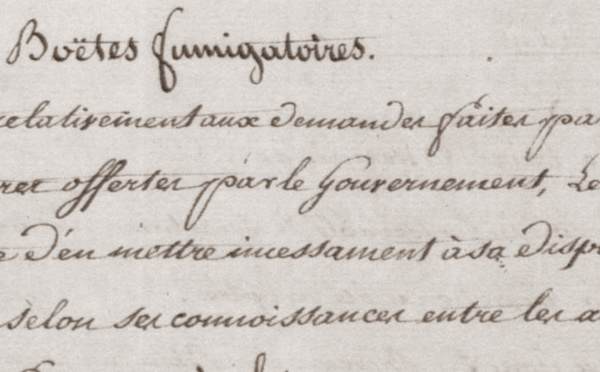 Boëtes fumigatoires.
relativement aux demandes faites pa
res offertes par le Gouvernement, Le
e d'en mettre incessament à sa disp
selon ses connoissances entre les a